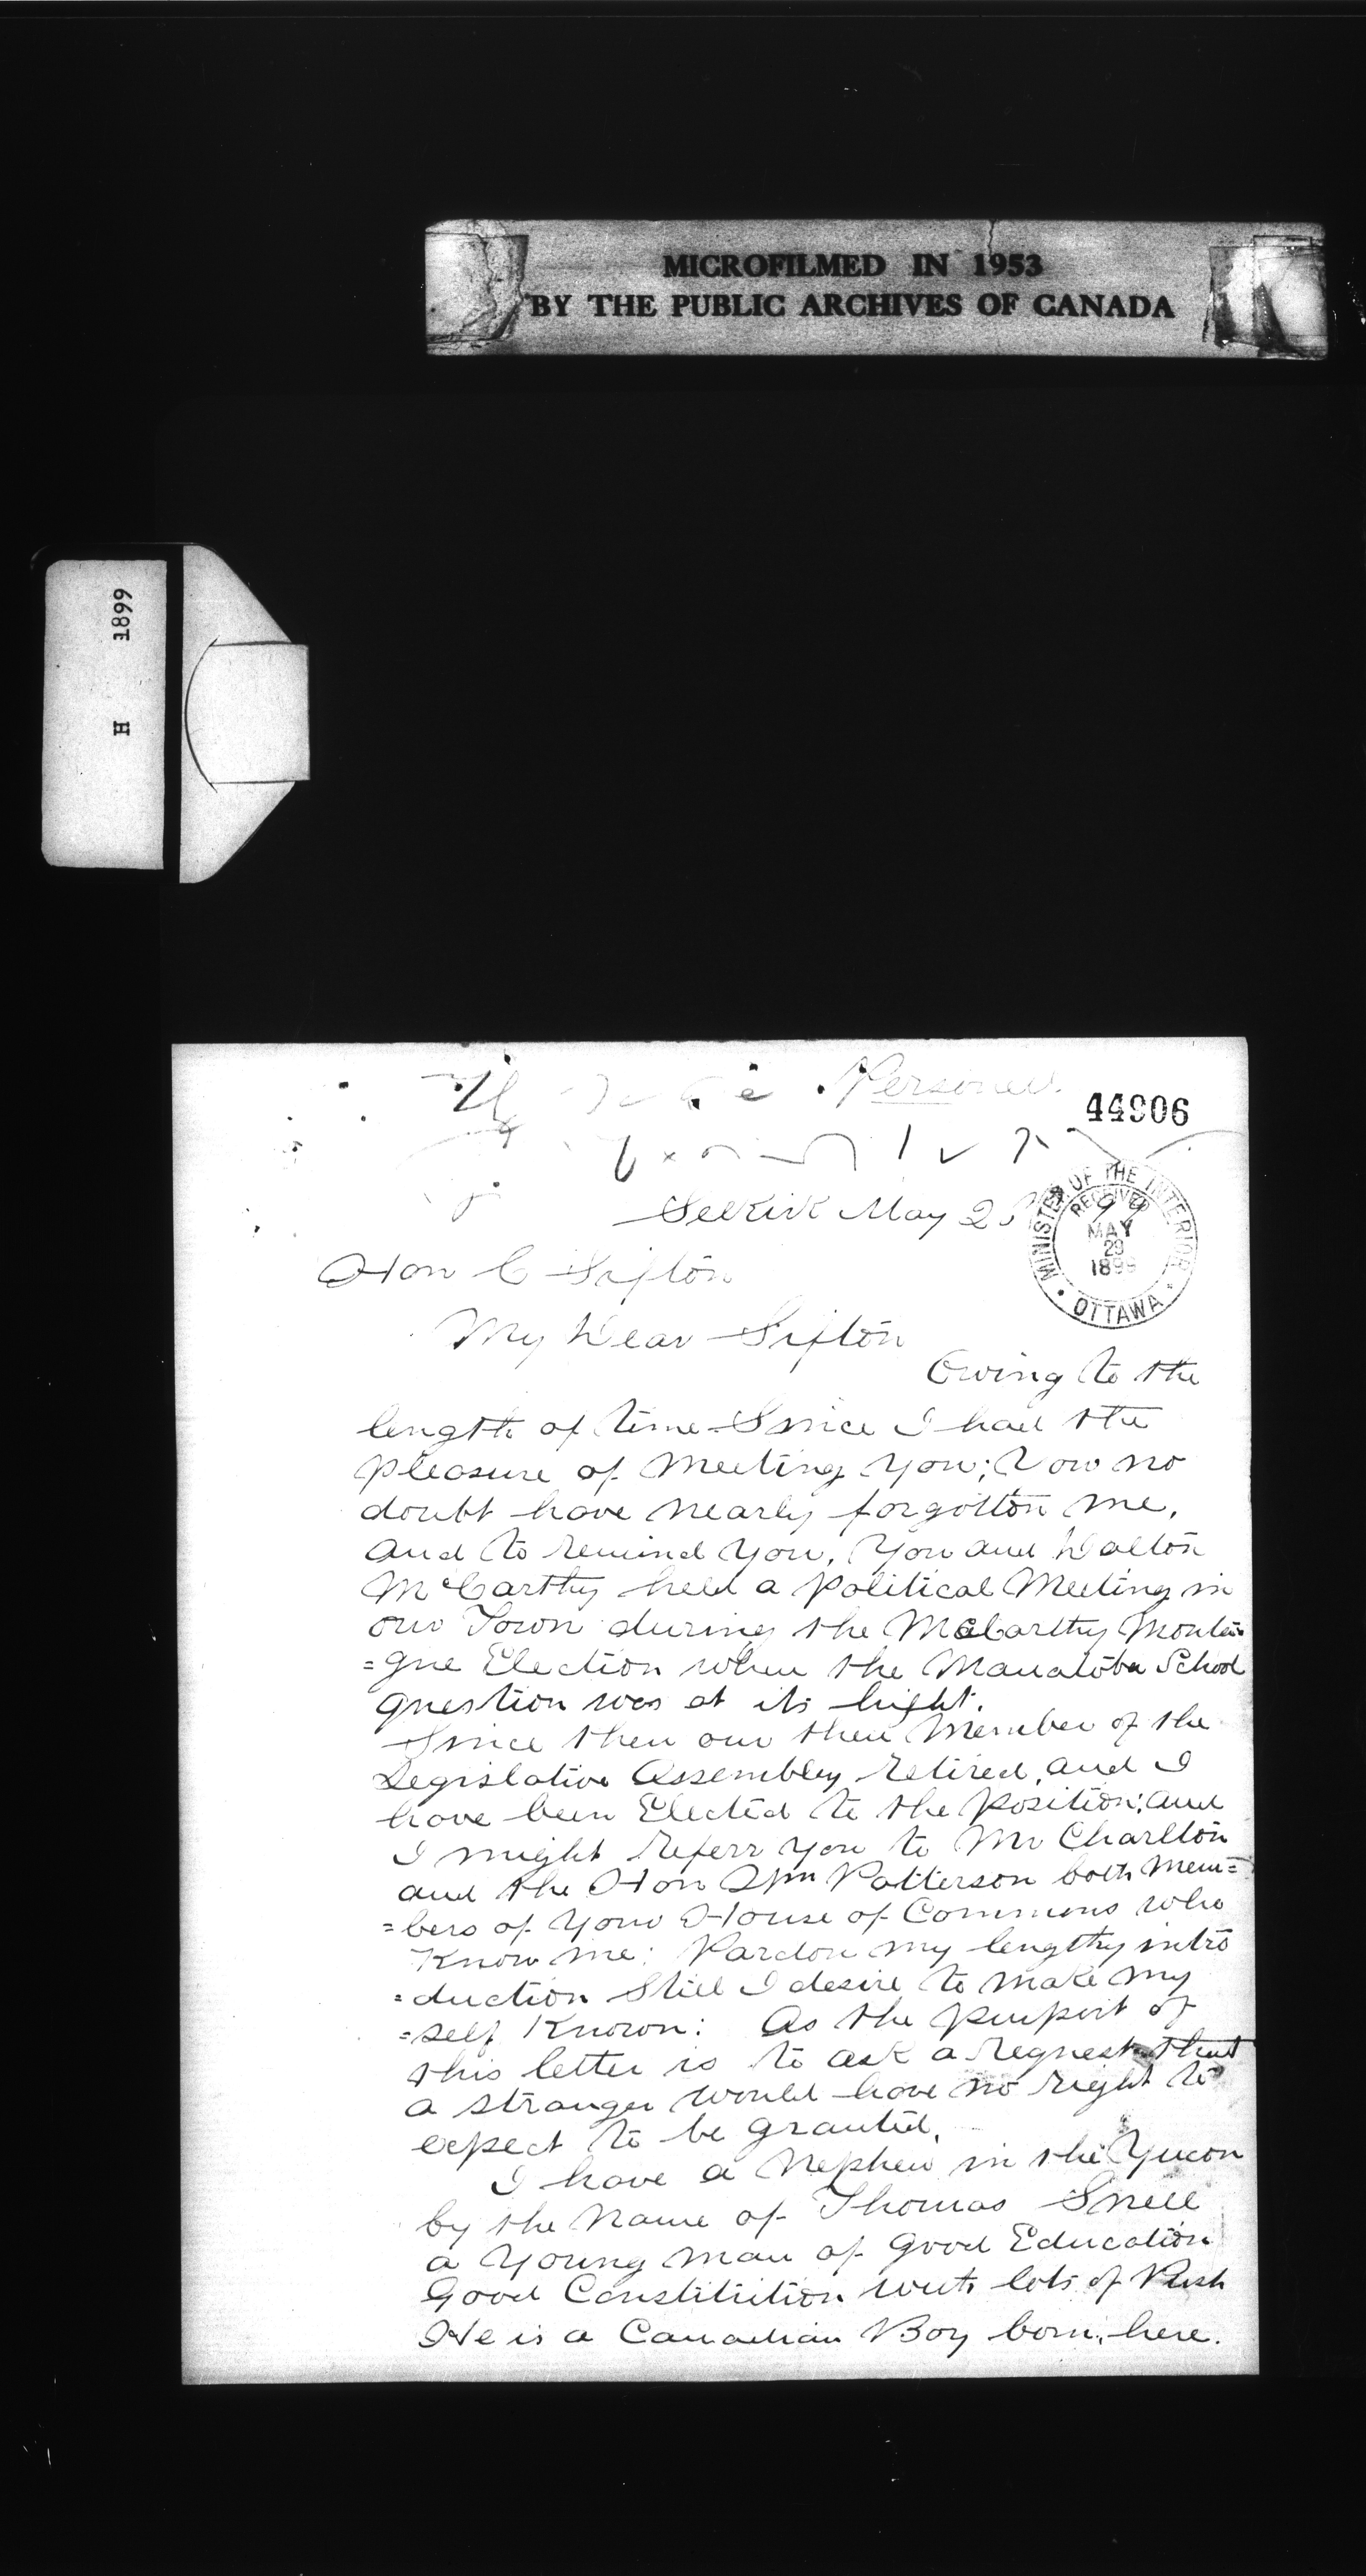 MICROFILMED IN 1953
BY THE PUBLIC ARCHIVES OF CANADA
H 1899
Personel
44906
Selkirk May 99
MINISTER OF THE INTERIOR
RECEIVED
MAY
29
1899
OTTAWA
Hon C Sifton
My Dear Sifton
Owing to the
length of time Since I had the
pleasure of Meeting You; You no
doubt have nearly forgotton me,
and to remind You, You and Dalton
McCarthy held a Political Meeting in
our Town during the McCarthy Monta
=gue Election when the Manatoba School
question was at its hight.
Since then our then Member of the
Legislative Assembly retired, and I
have been Elected to the Position; and
I might referr you to Mr Charlton
and the Hon Wm Patterson both Mem=
=bers of Your House of Commons who
Know me: Pardon my lengthy intro
=duction Still I desire to make my
=self Known: As the purport of
this letter is to ask a request that
a stranger would have no right to
expect to be granted.
I have a Nephew in the Yucon
by the Name of Thomas Snell
a Young man of Good Education
Good Constitution with lots of Push
He is a Canadian Boy born here.